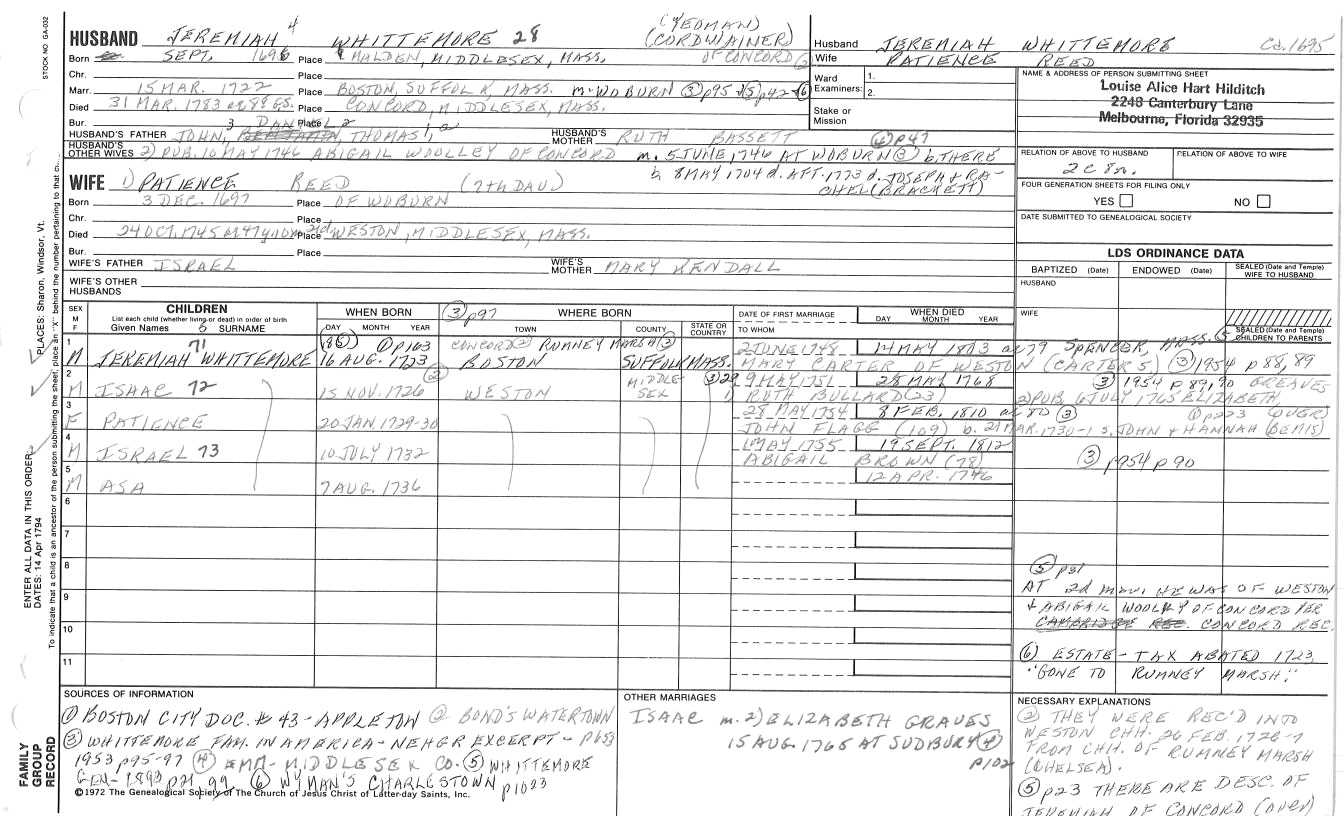 STOCK NO. GA-032
HUSBAND JEREMIAH 4 WHITTEMORE 28 (YEOMAN) (CORDWAINER)
Born SEPT. 1695 Place MALDEN, MIDDLESEX, MASS. OF CONCORD (2)
Chr. Place
Marr. 15 MAR. 1722 Place BOSTON, SUFFOLK, MASS. m. WOBURN (3) p95 + (5) p42 + (6)
Died 31 MAR. 1783 ae 88 GS. Place CONCORD, MIDDLESEX, MASS.
Bur. Place
HUSBAND'S FATHER JOHN, 3 DANIEL 2 THOMAS 1, a HUSBAND'S MOTHER RUTH BASSETT (6) p47
HUSBAND'S OTHER WIVES 2) PUB. 10 MAY 1746 ABIGAIL WOOLLEY OF CONCORD m. 5 JUNE 1746 AT WOBURN (3) b. THERE
b. 8 MAY 1704 d. AFT. 1773 d. JOSEPH & RACHEL (BRACKETT)
WIFE 1) PATIENCE REED (7th DAU)
Born 3 DEC. 1697 Place OF WOBURN
Chr. Place
Died 24 OCT. 1745 Place WESTON, MIDDLESEX, MASS.
Bur. Place
WIFE'S FATHER ISRAEL WIFE'S MOTHER MARY KENDALL
WIFE'S OTHER HUSBANDS
Husband JEREMIAH WHITTEMORE Ca. 1695
Wife PATIENCE REED
Ward 1.
Examiners: 2.
Stake or Mission
NAME & ADDRESS OF PERSON SUBMITTING SHEET
Louise Alice Hart Hilditch
2248 Canterbury Lane
Melbourne, Florida 32935
RELATION OF ABOVE TO HUSBAND RELATION OF ABOVE TO WIFE
2C8r.
FOUR GENERATION SHEETS FOR FILING ONLY
YES NO
DATE SUBMITTED TO GENEALOGICAL SOCIETY
LDS ORDINANCE DATA
BAPTIZED (Date) ENDOWED (Date) SEALED (Date and Temple) WIFE TO HUSBAND
HUSBAND
WIFE
SEALED (Date and Temple) CHILDREN TO PARENTS
SEX M F CHILDREN List each child (whether living or dead) in order of birth Given Names SURNAME
WHEN BORN DAY MONTH YEAR (3) p97 WHERE BORN TOWN COUNTY STATE OR COUNTRY
DATE OF FIRST MARRIAGE TO WHOM WHEN DIED DAY MONTH YEAR
1 M JEREMIAH 71 WHITTEMORE 16 AUG. 1723 (1) p163 CONCORD (2) RUMNEY MARSH (3) BOSTON SUFFOLK MASS. 2 JUNE 1748 14 MAY 1803 ae 79 SPENCER, MASS. (5)
MARY CARTER OF WESTON (CARTER 5.) (3) 1954 p 88, 89
2 M ISAAC 72 15 NOV. 1726 (2) WESTON MIDDLESEX (3) 29 9 MAY 1751 28 MAY 1768 (3) 1954 p 89, 90 GREAVES
1) RUTH BULLARD (23) 2) PUB 6 JULY 1765 ELIZABETH,
3 F PATIENCE 20 JAN. 1729-30 28 MAY 1754 8 FEB. 1810 ae 80 (3) (1) p223 (OVER)
JOHN FLAGG (109) b. 21 MAR. 1730-1 s. JOHN + HANNAH (BEMIS)
4 M ISRAEL 73 10 JULY 1732 1 MAY 1755 19 SEPT. 1812
ABIGAIL BROWN (78) (3) 1954 p 90
5 M ASA 7 AUG. 1736 12 APR. 1746
6
7
8
9
10
11
(5) p31
AT 2d marr. HE WAS OF WESTON
+ ABIGAIL WOOLLEY OF CONCORD PER
CAMBRIDGE REC. CONCORD REC.
(6) ESTATE - TAX ABATED 1723,
"GONE TO RUMNEY MARSH."
SOURCES OF INFORMATION
(1) BOSTON CITY DOC. # 43 - APPLETON (2) BOND'S WATERTOWN p653
(3) WHITTEMORE FAM. IN AMERICA - NEHGR EXCERPT -
1953 p95-97 (4) EMM - MIDDLESEX CO. (5) WHITTEMORE
GEN - 1893 p21, 99 (6) WYMAN'S CHARLESTOWN p1023
©1972 The Genealogical Society of The Church of Jesus Christ of Latter-day Saints, Inc.
OTHER MARRIAGES
ISAAC m. 2) ELIZABETH GRAVES
15 AUG. 1765 AT SUDBURY (4)
p102
NECESSARY EXPLANATIONS
(2) THEY WERE REC'D INTO
WESTON CHH. 26 FEB. 1726-7
FROM CHH. OF RUMNEY MARSH
(CHELSEA).
(5) p23 THERE ARE DESC. OF
JEREMIAH OF CONCORD (OVER)
ENTER ALL DATA IN THIS ORDER:
DATES: 14 Apr 1794
PLACES: Sharon, Windsor, Vt.
To indicate that a child is an ancestor of the person submitting the sheet, place an "X" behind the number pertaining to that ch
FAMILY GROUP RECORD